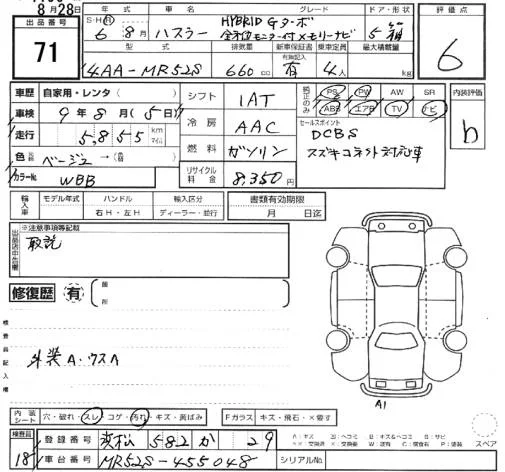 8月28日
出品番号
71
年式 車名 グレード ドア・形状 評価点
S・H・R 6年 8月 ハスラー HYBRID Gターボ 5 箱 6
全方位モニター付メモリーナビ
型式 排気量 新車保証書 乗車定員 最大積載量
有無記入
4AA-MR52S 660cc 有 4人 kg
車歴 自家用・レンタ( )
車検 9年 8月(5日)
走行 5,855 km マイル
色 元色 ベージュ → (
カラーNo. WBB
シフト 1AT
冷房 AAC
燃料 ガソリン
リサイクル料金 8,350円
純正のみ PS PW AW SR
ABS エアB TV ナビ
内装評価
b
セールスポイント
DCBS
スズキコネクト対応車
輸入車 モデル年式 ハンドル 輸入区分 書類有効期限
右H・左H ディーラー・並行 月 日迄
※注意事項等記載
取説
修復歴 有 箇所
検査員記入欄
外装A・ウスA
A1
内装シート 穴・破れ・スレ・コゲ・汚れ・キズ・黄ばみ Fガラス キズ・飛石・×要す
検査員 18
登録番号 浜松 582 か 29
車台番号 MR52S-455048 シリアルNo.
スペア